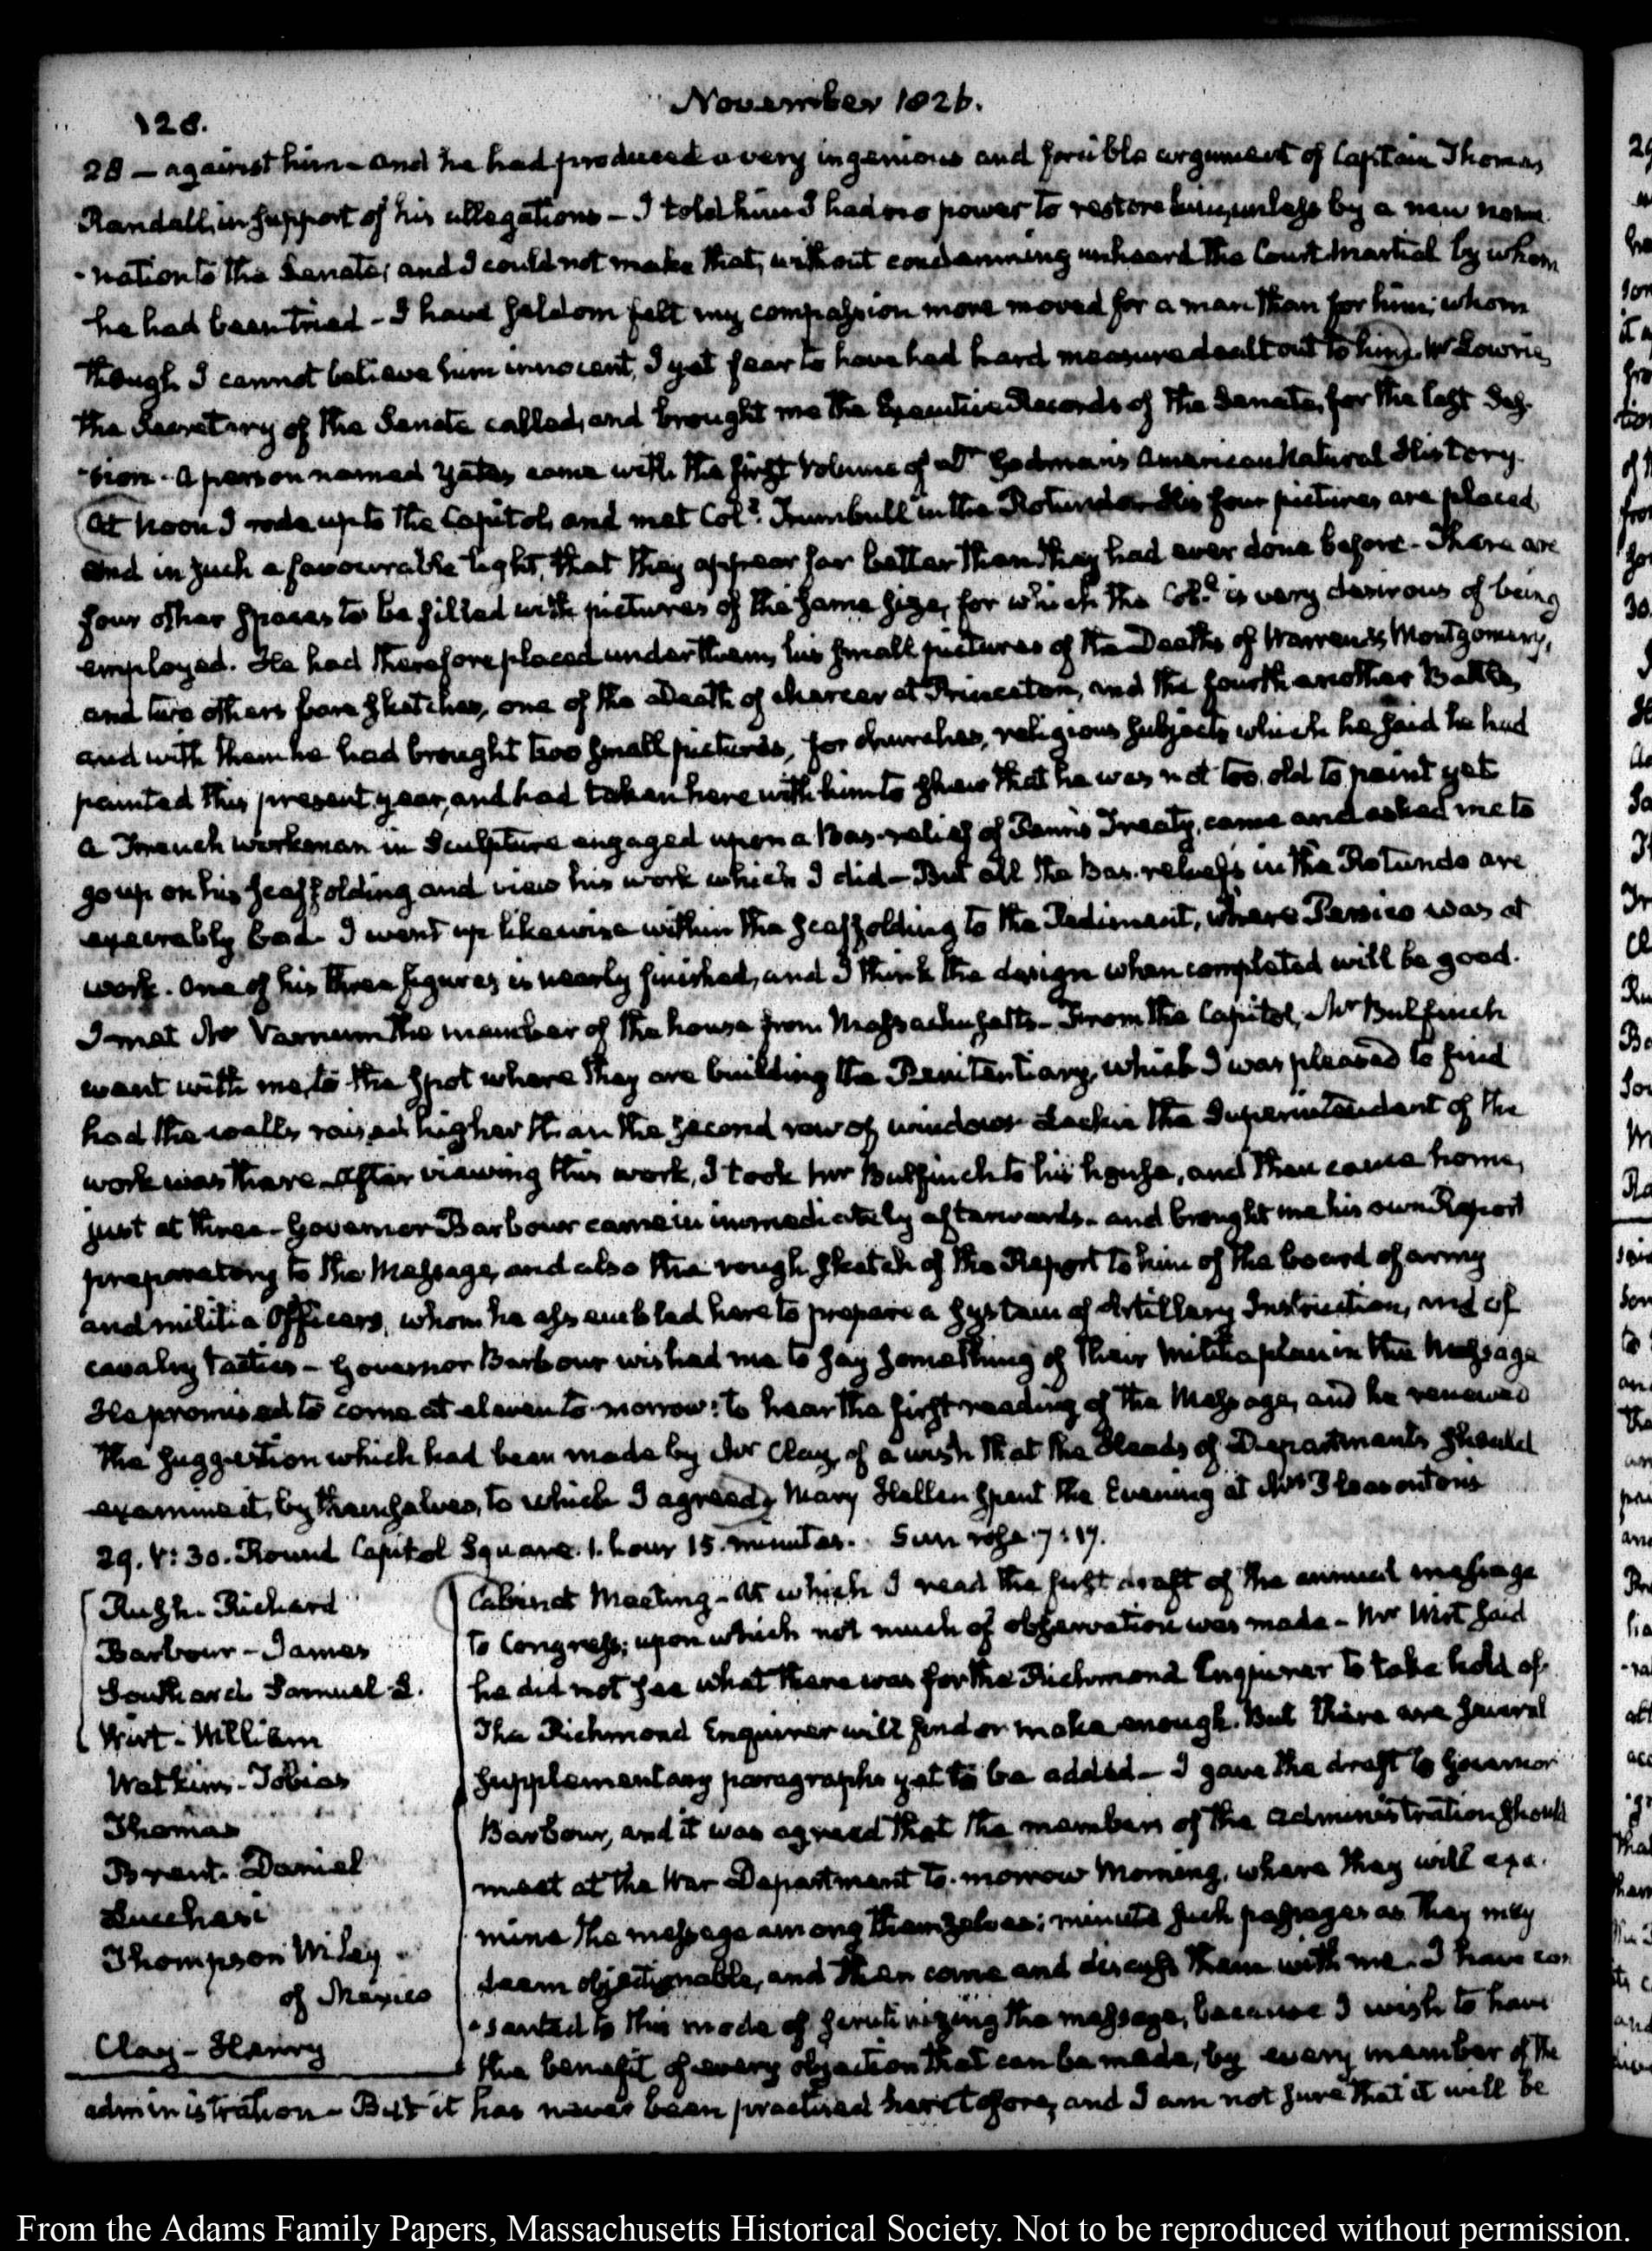 128.
November 1826.
28 — against him - and he had produced a very ingenious and forcible argument of Captain Thomas
Randall, in support of his allegations - I told him I had no power to restore him, unless by a new nomi
-nation to the Senate; and I could not make that, without condemning unheard the Court Martial by whom
he had been tried - I have seldom felt my compassion more moved for a man than for him; whom
though I cannot believe him innocent, I yet fear to have had hard measure dealt out to him. Mr Lowrie,
the Secretary of the Senate called, and brought me the Executive Records of the Senate, for the last Ses-
-sion - A person named Yates came with the first Volume of Dr Godman's American Natural History.
At Noon I rode up to the Capitol, and met Coll. Trumbull in the Rotunda - His four pictures are placed,
and in such a favourable light, that they appear far better than they had ever done before - There are
four other spaces to be filled with pictures of the same size, for which the Coll. is very desirous of being
employed. He had therefore placed under them, his small pictures of the Deaths of Warren & Montgomery,
and two others bare sketches, one of the Death of Mercer at Princeton, and the fourth another Battle,
and with them he had brought two small pictures, for churches, religious subjects which he said he had
painted this present year, and had taken here with him to shew that he was not too old to paint yet
A French workman in Sculpture engaged upon a Bas-relief of Penn's Treaty, came and asked me to
go up on his scaffolding and view his work which I did - But all the Bas-reliefs in the Rotunda are
execrably bad. I went up likewise within the scaffolding to the Pediment, where Persico was at
work. One of his three figures is nearly finished, and I think the design when completed will be good.
I met Mr Varnum the member of the house from Massachusetts - From the Capitol, Mr Bulfinch
went with me, to the spot where they are building the Penitentiary, which I was pleased to find
had the walls raised higher than the second row of windows - the Superintendant of the
work was there - After viewing this work, I took Mr Bulfinch to his house, and then came home,
just at three - Governor Barbour came in immediately afterwards - and brought me his own Report
preparatory to the Message, and also the rough sketch of the Report to him of the board of army
and militia Officers, whom he assembled here to prepare a system of Artillery Instruction, and of
cavalry tactics - Governor Barbour wished me to say something of their Militia plan in the Message
He promised to come at eleven to-morrow: to hear the first reading of the Message, and he renewed
the suggestion which had been made by Mr Clay, of a wish that the Heads of Departments should
examine it, by themselves, to which I agreed. Mary Hellen spent the Evening at Mrs Pleasonton's
29. V: 30. Round Capitol Square. 1. hour 15. minutes. Sun rose 7:17.
Rush - Richard
Barbour - James
Southard Samuel L.
Wirt - William
Watkins - Tobias
Thomas
Brent - Daniel
Lucchesi
Thompson Wiley
of Mexico
Clay - Henry
Cabinet Meeting - At which I read the first draft of the annual message
to Congress; upon which not much of observation was made - Mr Wirt said
he did not see what there was for the Richmond Enquirer to take hold of.
The Richmond Enquirer will find or make enough. But there are several
supplementary paragraphs yet to be added - I gave the draft to Governor
Barbour, and it was agreed that the members of the administration should
meet at the War Department to-morrow Morning, where they will exa-
mine the message among themselves; minute such passages as they may
deem objectionable, and then come and discuss them with me. I have con
-sented to this mode of scrutinizing the message, because I wish to have
the benefit of every objection that can be made, by every member of the
administration - But it has never been practised heretofore, and I am not sure that it will be
From the Adams Family Papers, Massachusetts Historical Society. Not to be reproduced without permission.